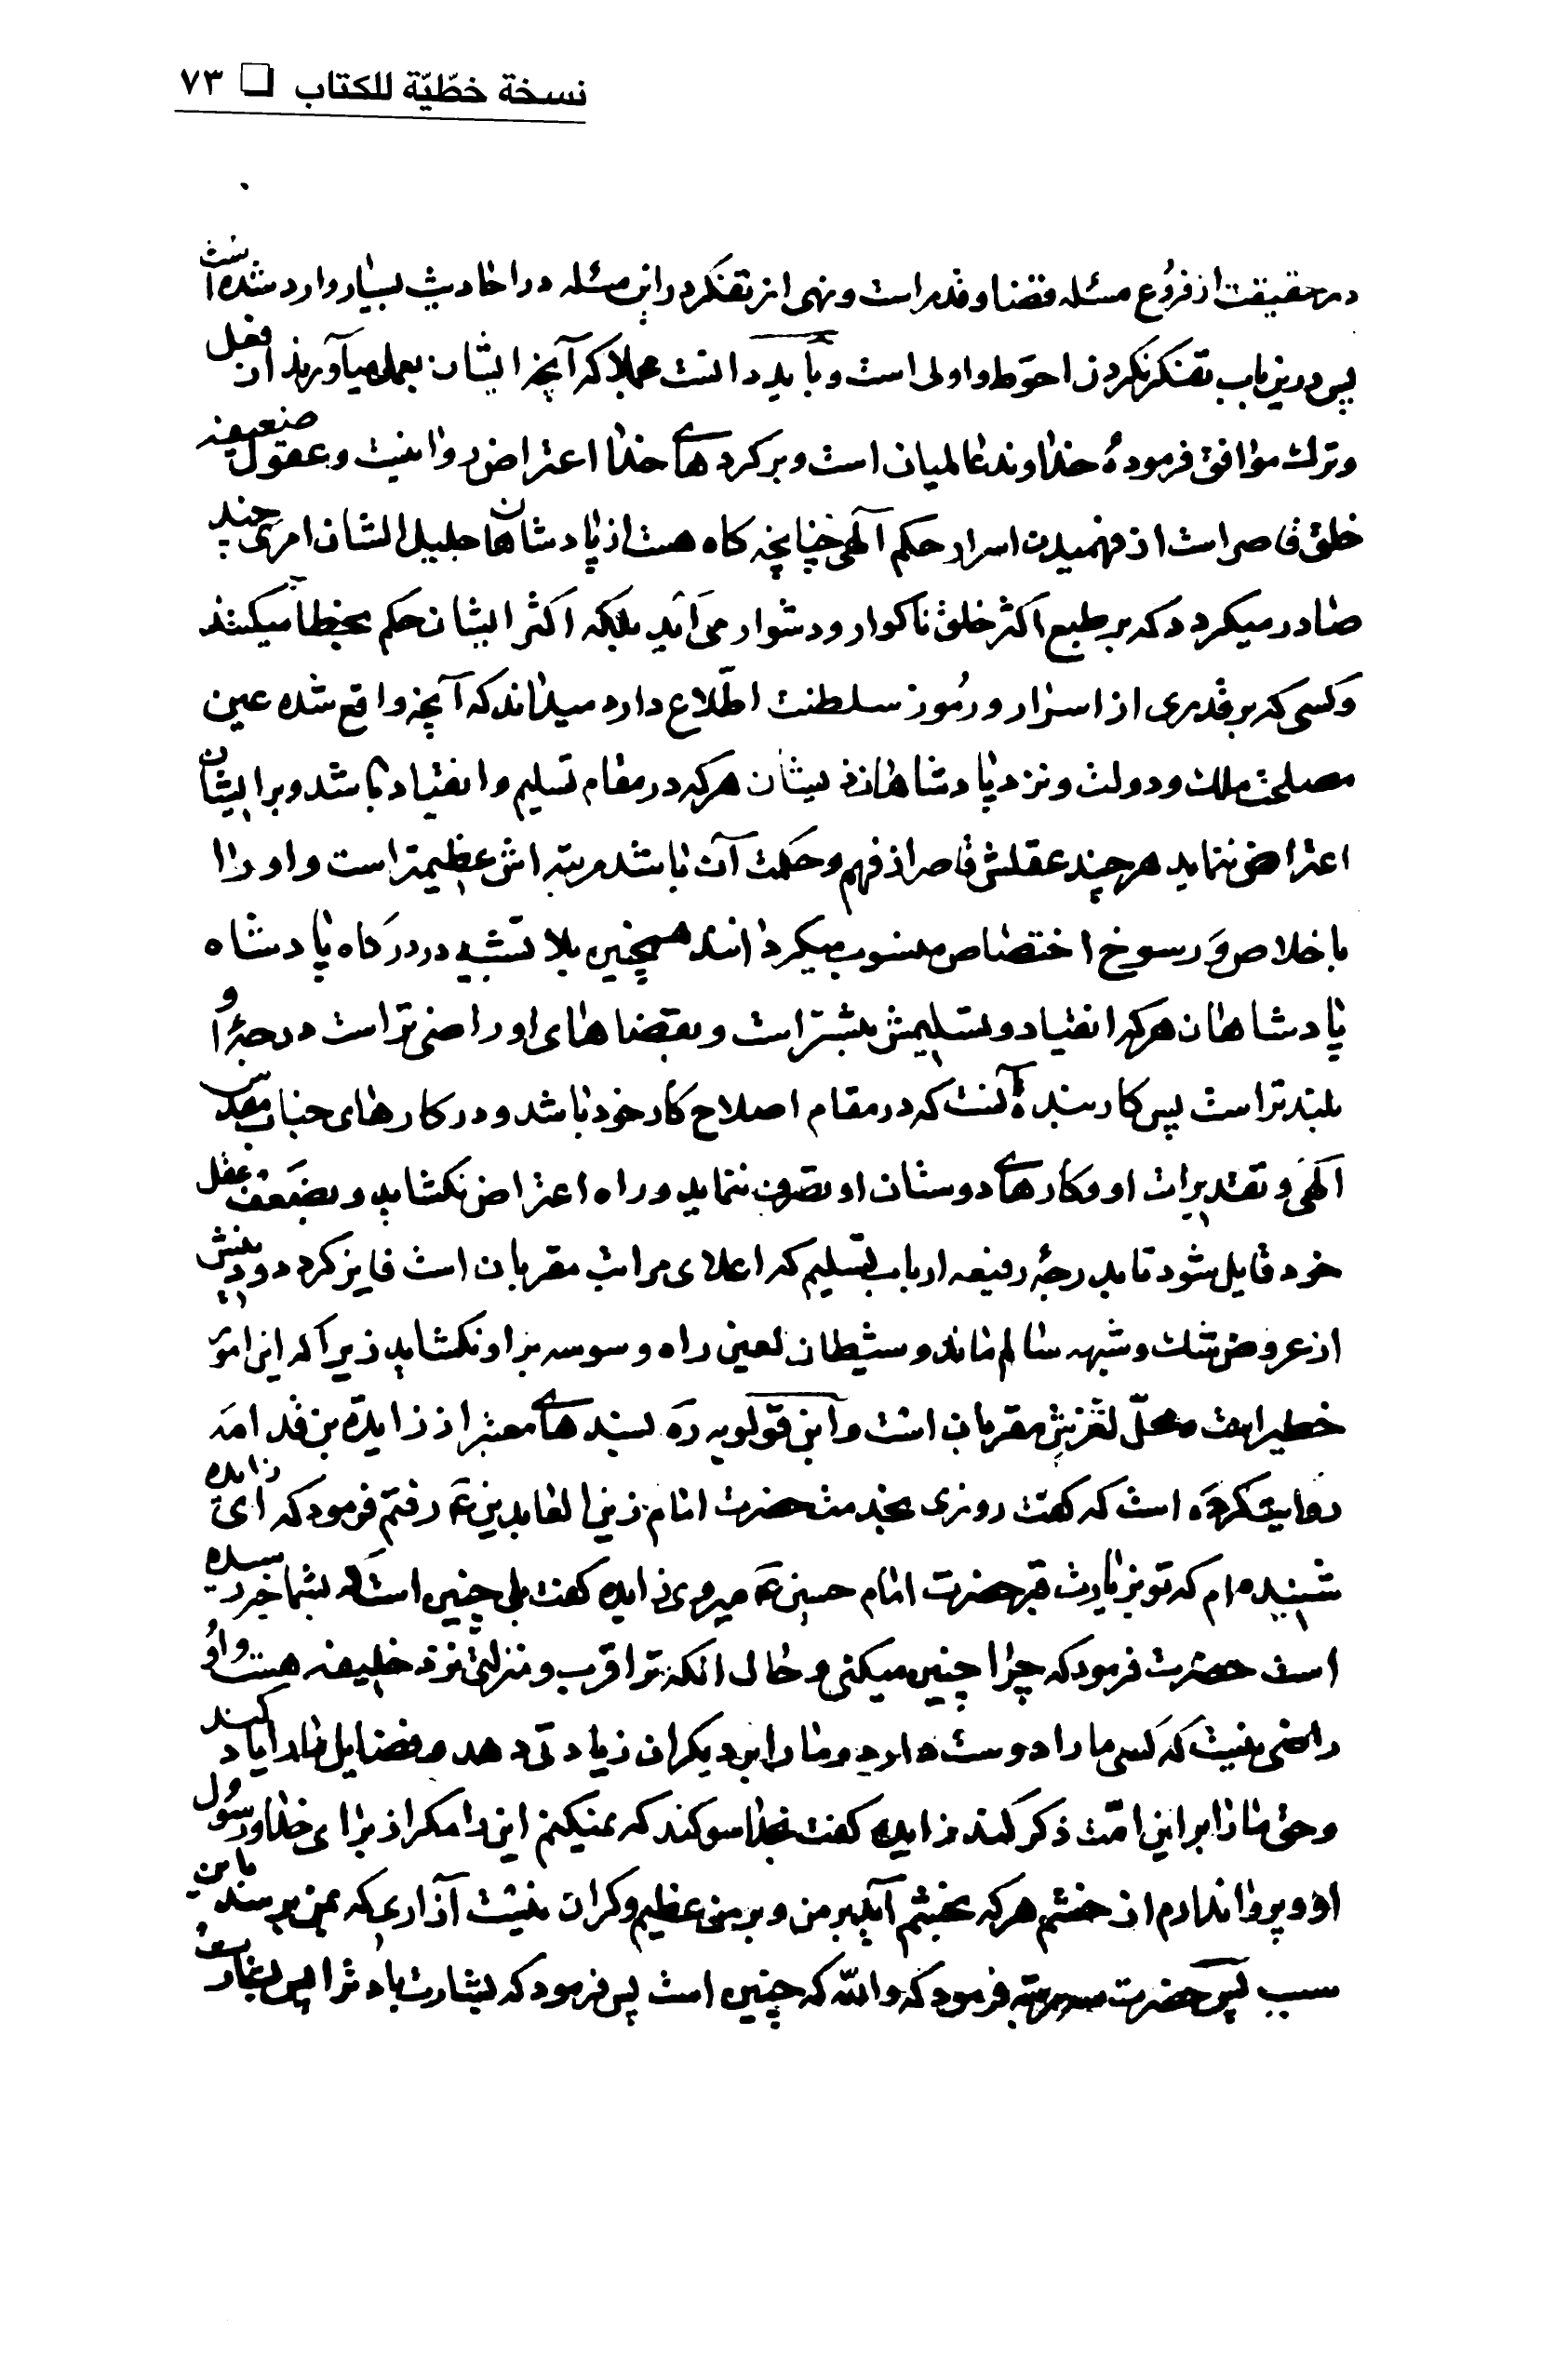 نسخة خطّيّة للكتاب ❏ ٧٣
در حقیقت از فروع مسئله قضا و قدر است و نهی از تفکر در این مسئله در احادیث بسیار وارد شده است
پس درین باب تفکر نکردن احوط و اولی است و باید دانست مجملا که آنچه ایشان بعمل میآورند از فعل
و ترک موافق فرمودهٔ خداوند عالمیان است و بر کردهای خدا اعتراض روا نیست و عقول ضعیفه
خلق قاصر است از فهمیدن اسرار حکم آلهی چنانچه کاه هست از پادشاهان جلیل الشان امری چند
صادر میکردد که بر طبع اکثر خلق ناکوار و دشوار می آید بلکه اکثر ایشان حکم بخطا میکنند
و کسی که بر قدری از اسرار و رُموز سلطنت اطّلاع دارد میداند که آنچه واقع شده عین
مصلحت ملک و دولت و نزد پادشاهان ذیشان هرکه در مقام تسلیم و انقیاد باشد و بر ایشان
اعتراض ننماید هر چند عقلش قاصر از فهم و حکمت آن باشد مرتبه اش عظیمتر است و او را
باخلاص و رسوخ اختصاص منسوب میکردانند همچنین بلا تشبیه در درکاه پادشاه
پادشاهان هرکه انقیاد و تسلیمش بیشتر است و بقضاهای او راضی تر است درجهٔ او
بلندتر است پس کار بنده آنست که در مقام اصلاح کار خود باشد و در کارهای جناب مقدس
آلهی و تقدیرات او و کارهای دوستان او تصرف ننماید و راه اعتراض نکشاید و بضعف عقل
خود قایل شود تا بدرجهٔ رفیعه ارباب تسلیم که اعلای مراتب مقربان است فایز کردد و دینش
از عروض شک و شبهه سالم ماند و شیطان لعین راه وسوسه بر او نکشاید زیرا که این امور
خطیر است و محلّ لغزش مقربان است و ابن قولویه ره بسندهای معتبر از زایده بن قدامه
روایت کرده است که کفت روزی بخدمت حضرت امام زین العابدین ع رفتم فرمود که ای زایده
شنیده ام که تو بزیارت قبر حضرت امام حسین ع میروی زایده کفت بلی چنین است که بشما خبر رسیده
است حضرت فرمود که چرا چنین میکنی و حال انکه ترا قرب و منزلتی نزد خلیفه هست و او
راضی نیست که کسی ما را دوست دارد و ما را بر دیکران زیادتی دهد و فضایل ما را یاد کند
و حق ما را بر این امّت ذکر کند زایده کفت بخدا سوکند که نمیکنم این را مکر از برای خدا و رسول
او و پروا ندارم از خشم هرکه بخشم آید بر من و بر من عظیم و کران نیست آزاری که بمن برسد باین
سبب پس حضرت سه مرتبه فرمود که والله که چنین است پس فرمود که بشارت باد ترا پس بشارت